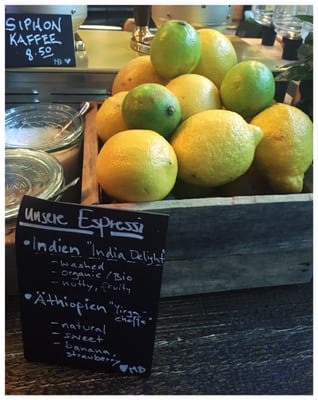 SIPHON
KAFFEE
8.50
MB
Unsere Espressi
• Indien "India Delight
- washed
- organic / Bio
- nutty, fruity
• Äthiopien "Yirga-
cheffe"
- natural
- sweet
- banana,
strawberry
MB